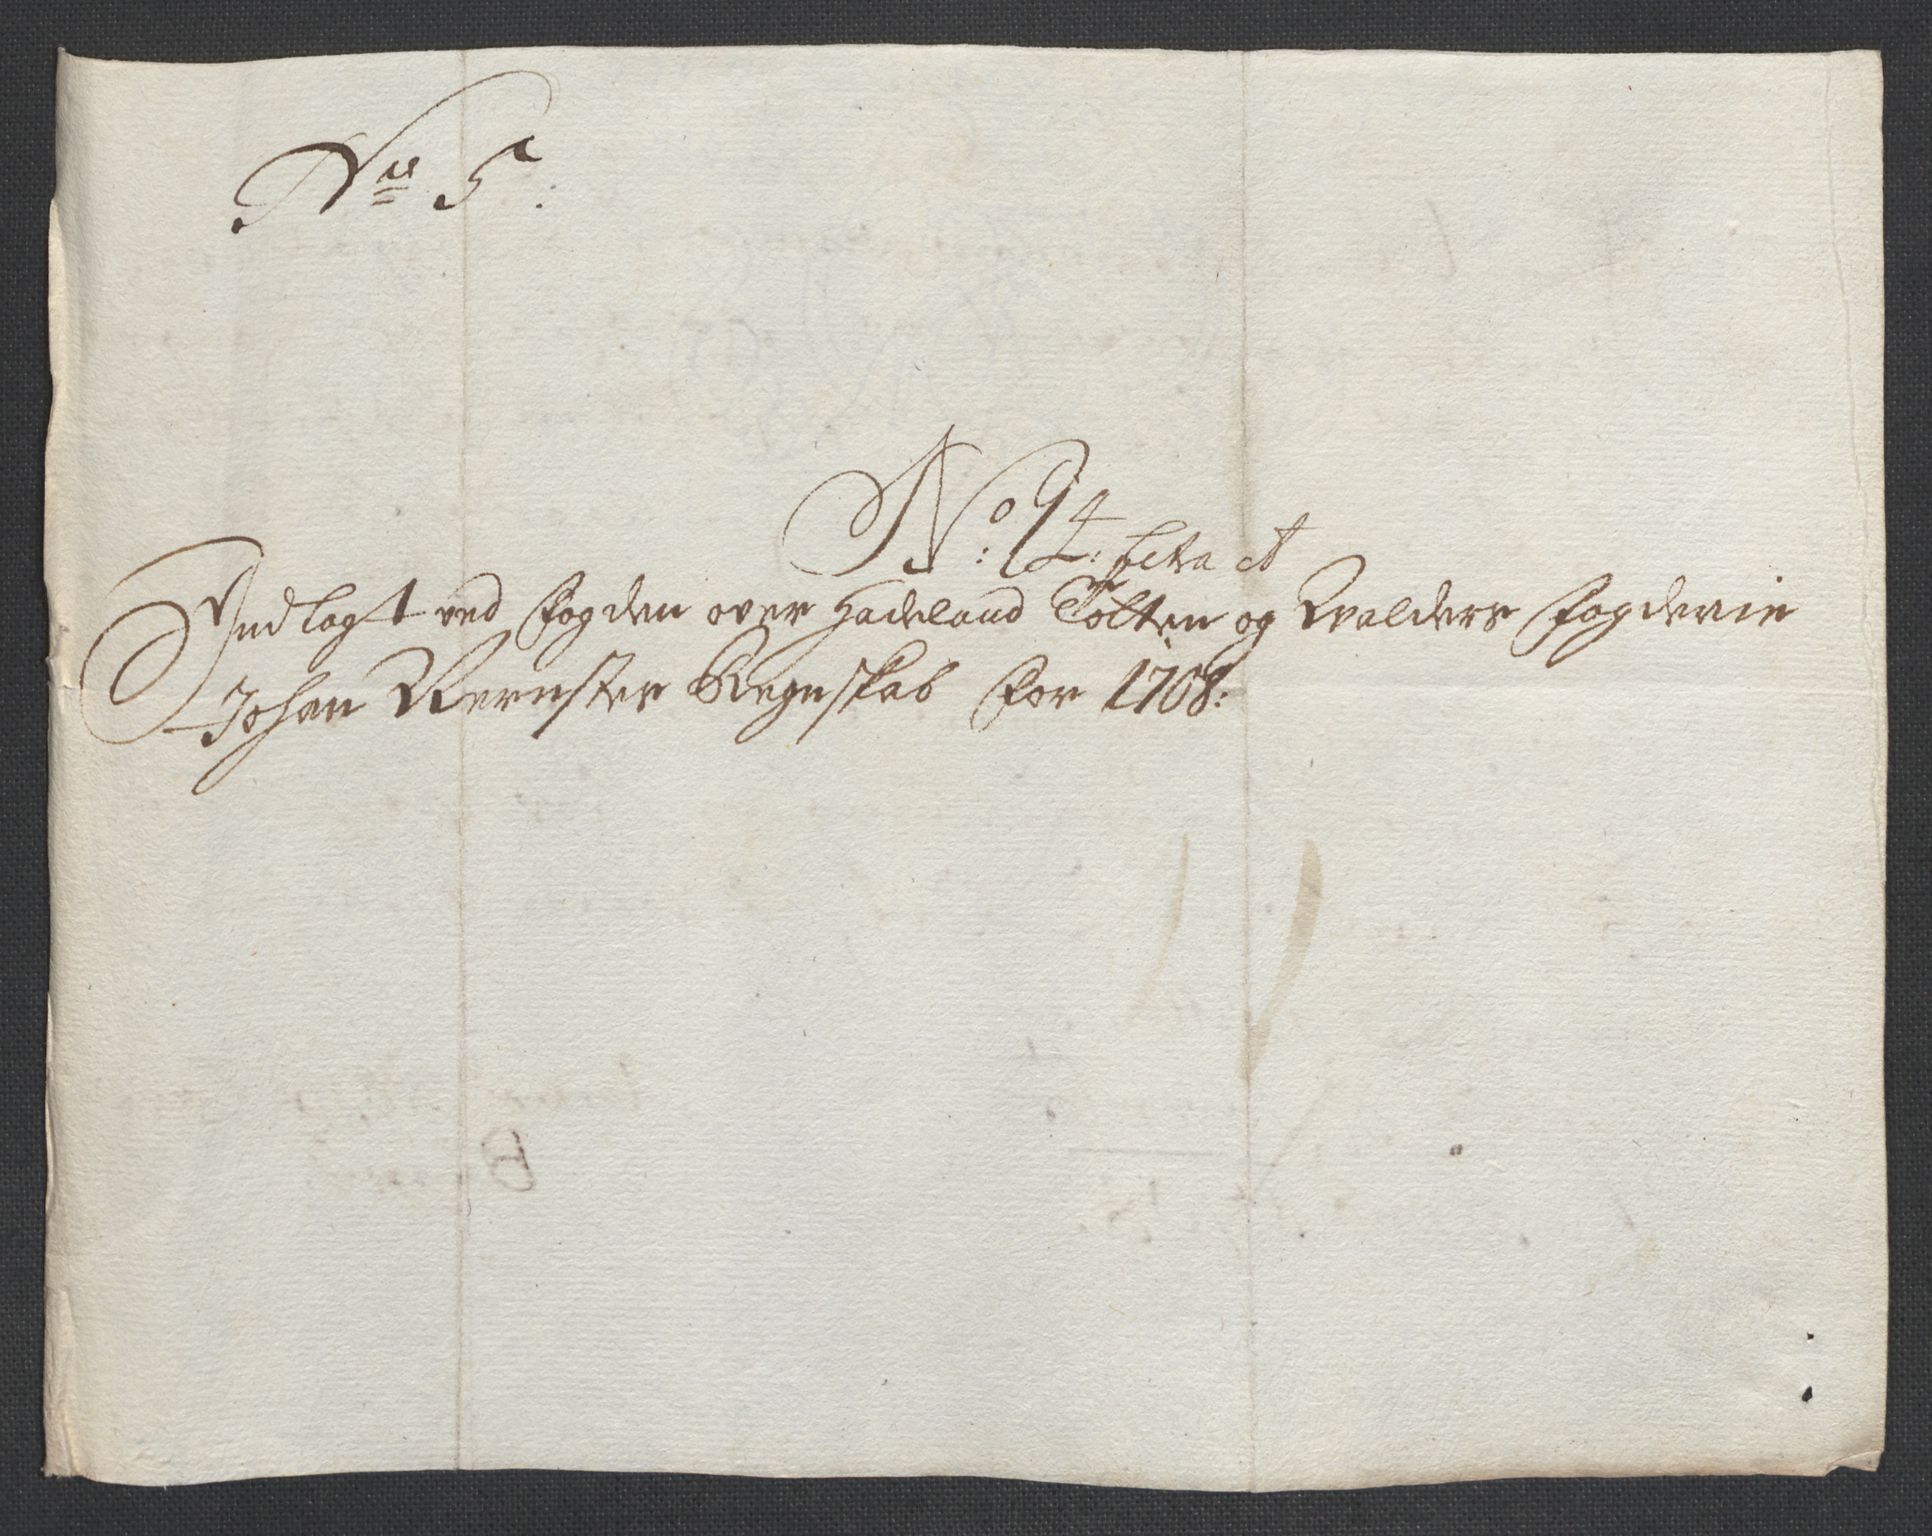 No 5:
No: 14: Litra A
Indlagt ved Fogden over Hadeland Totten og Walders Fogderie
Johan Wernster Regnskab for 1708: